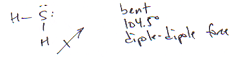 H-S̈:
H
bent
104.5°
dipole-dipole force